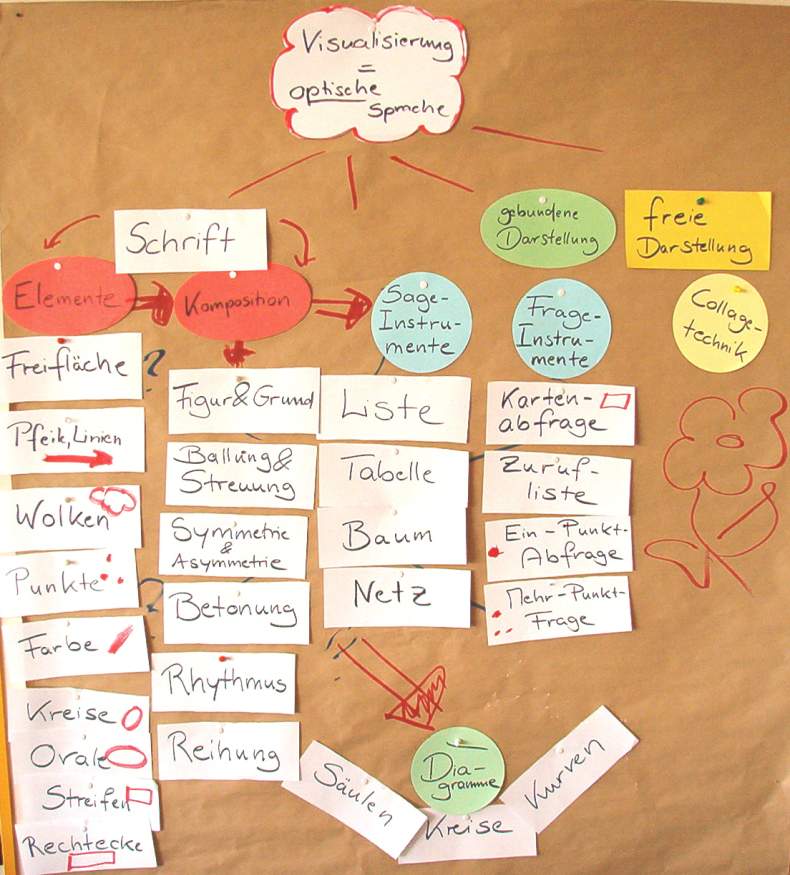 Visualisierung
=
optische
Sprache
Schrift
gebundene
Darstellung
freie
Darstellung
Elemente
Komposition
Sage-
Instru-
mente
Frage-
Instru-
mente
Collage-
technik
Freifläche
?
Pfeile, Linien
Wolken
Punkte
?
Farbe
Kreise
Ovale
Streifen
Rechtecke
Figur & Grund
Ballung &
Streuung
Symmetrie
&
Asymmetrie
Betonung
Rhythmus
Reihung
Liste
Tabelle
Baum
Netz
Karten-
abfrage
Zuruf-
liste
Ein-Punkt-
Abfrage
Mehr-Punkt-
Frage
Dia-
gramme
Säulen
Kreise
Kurven